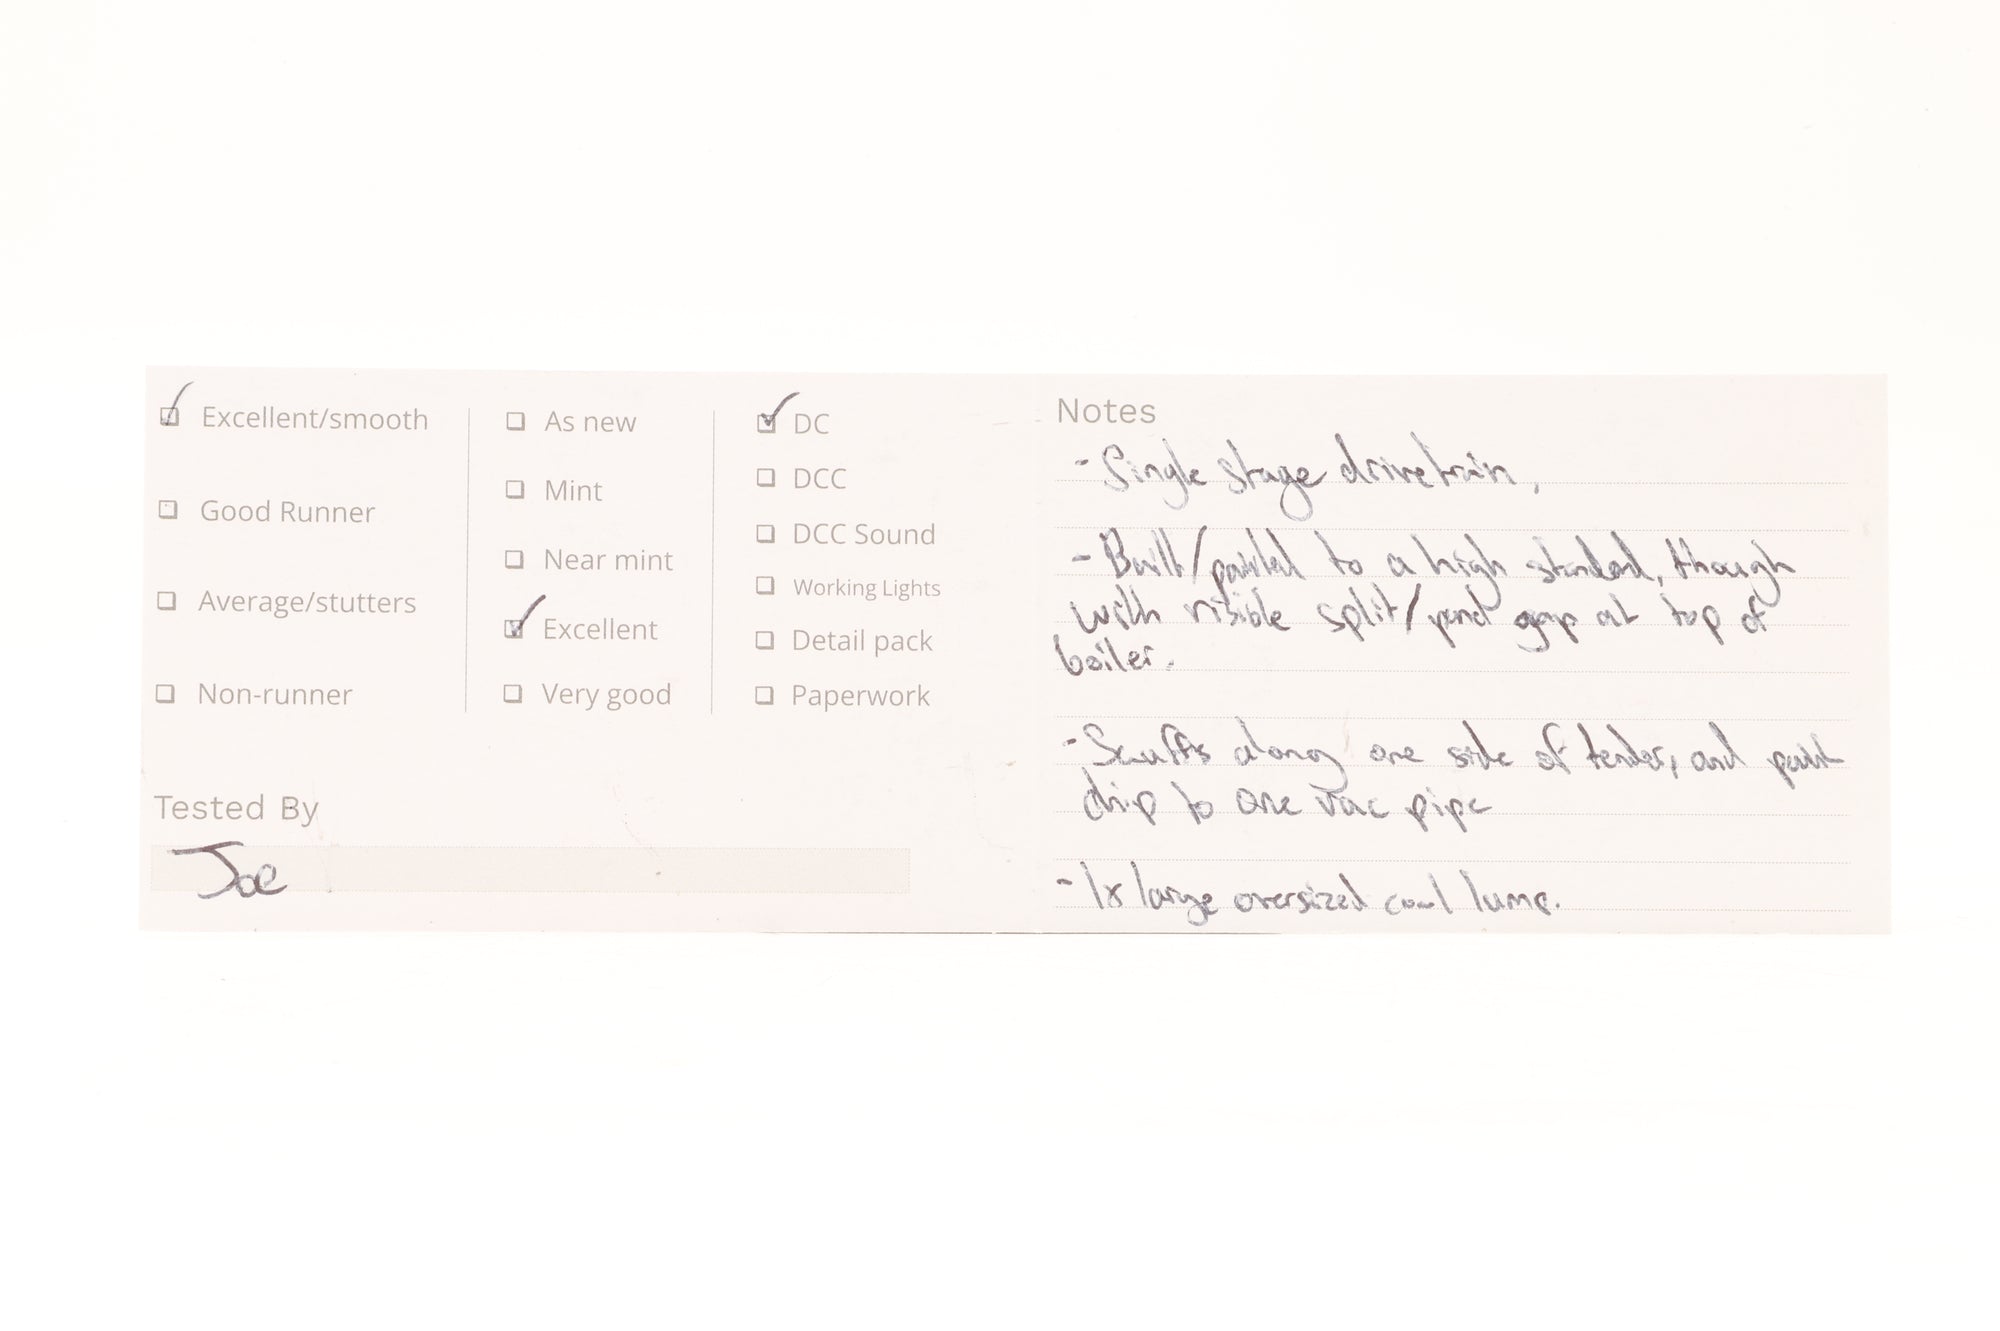 Excellent/smooth
Good Runner
Average/stutters
Non-runner
As new
Mint
Near mint
Excellent
Very good
DC
DCC
DCC Sound
Working Lights
Detail pack
Paperwork
Tested By
Joe
Notes
- Single stage drivetrain.
- Built/painted to a high standard, though
with visible split/ gap at top of
boiler.
- Scuffs along one side of tender, and paint
drip to one vac pipe
- 1x large oversized coal lump.